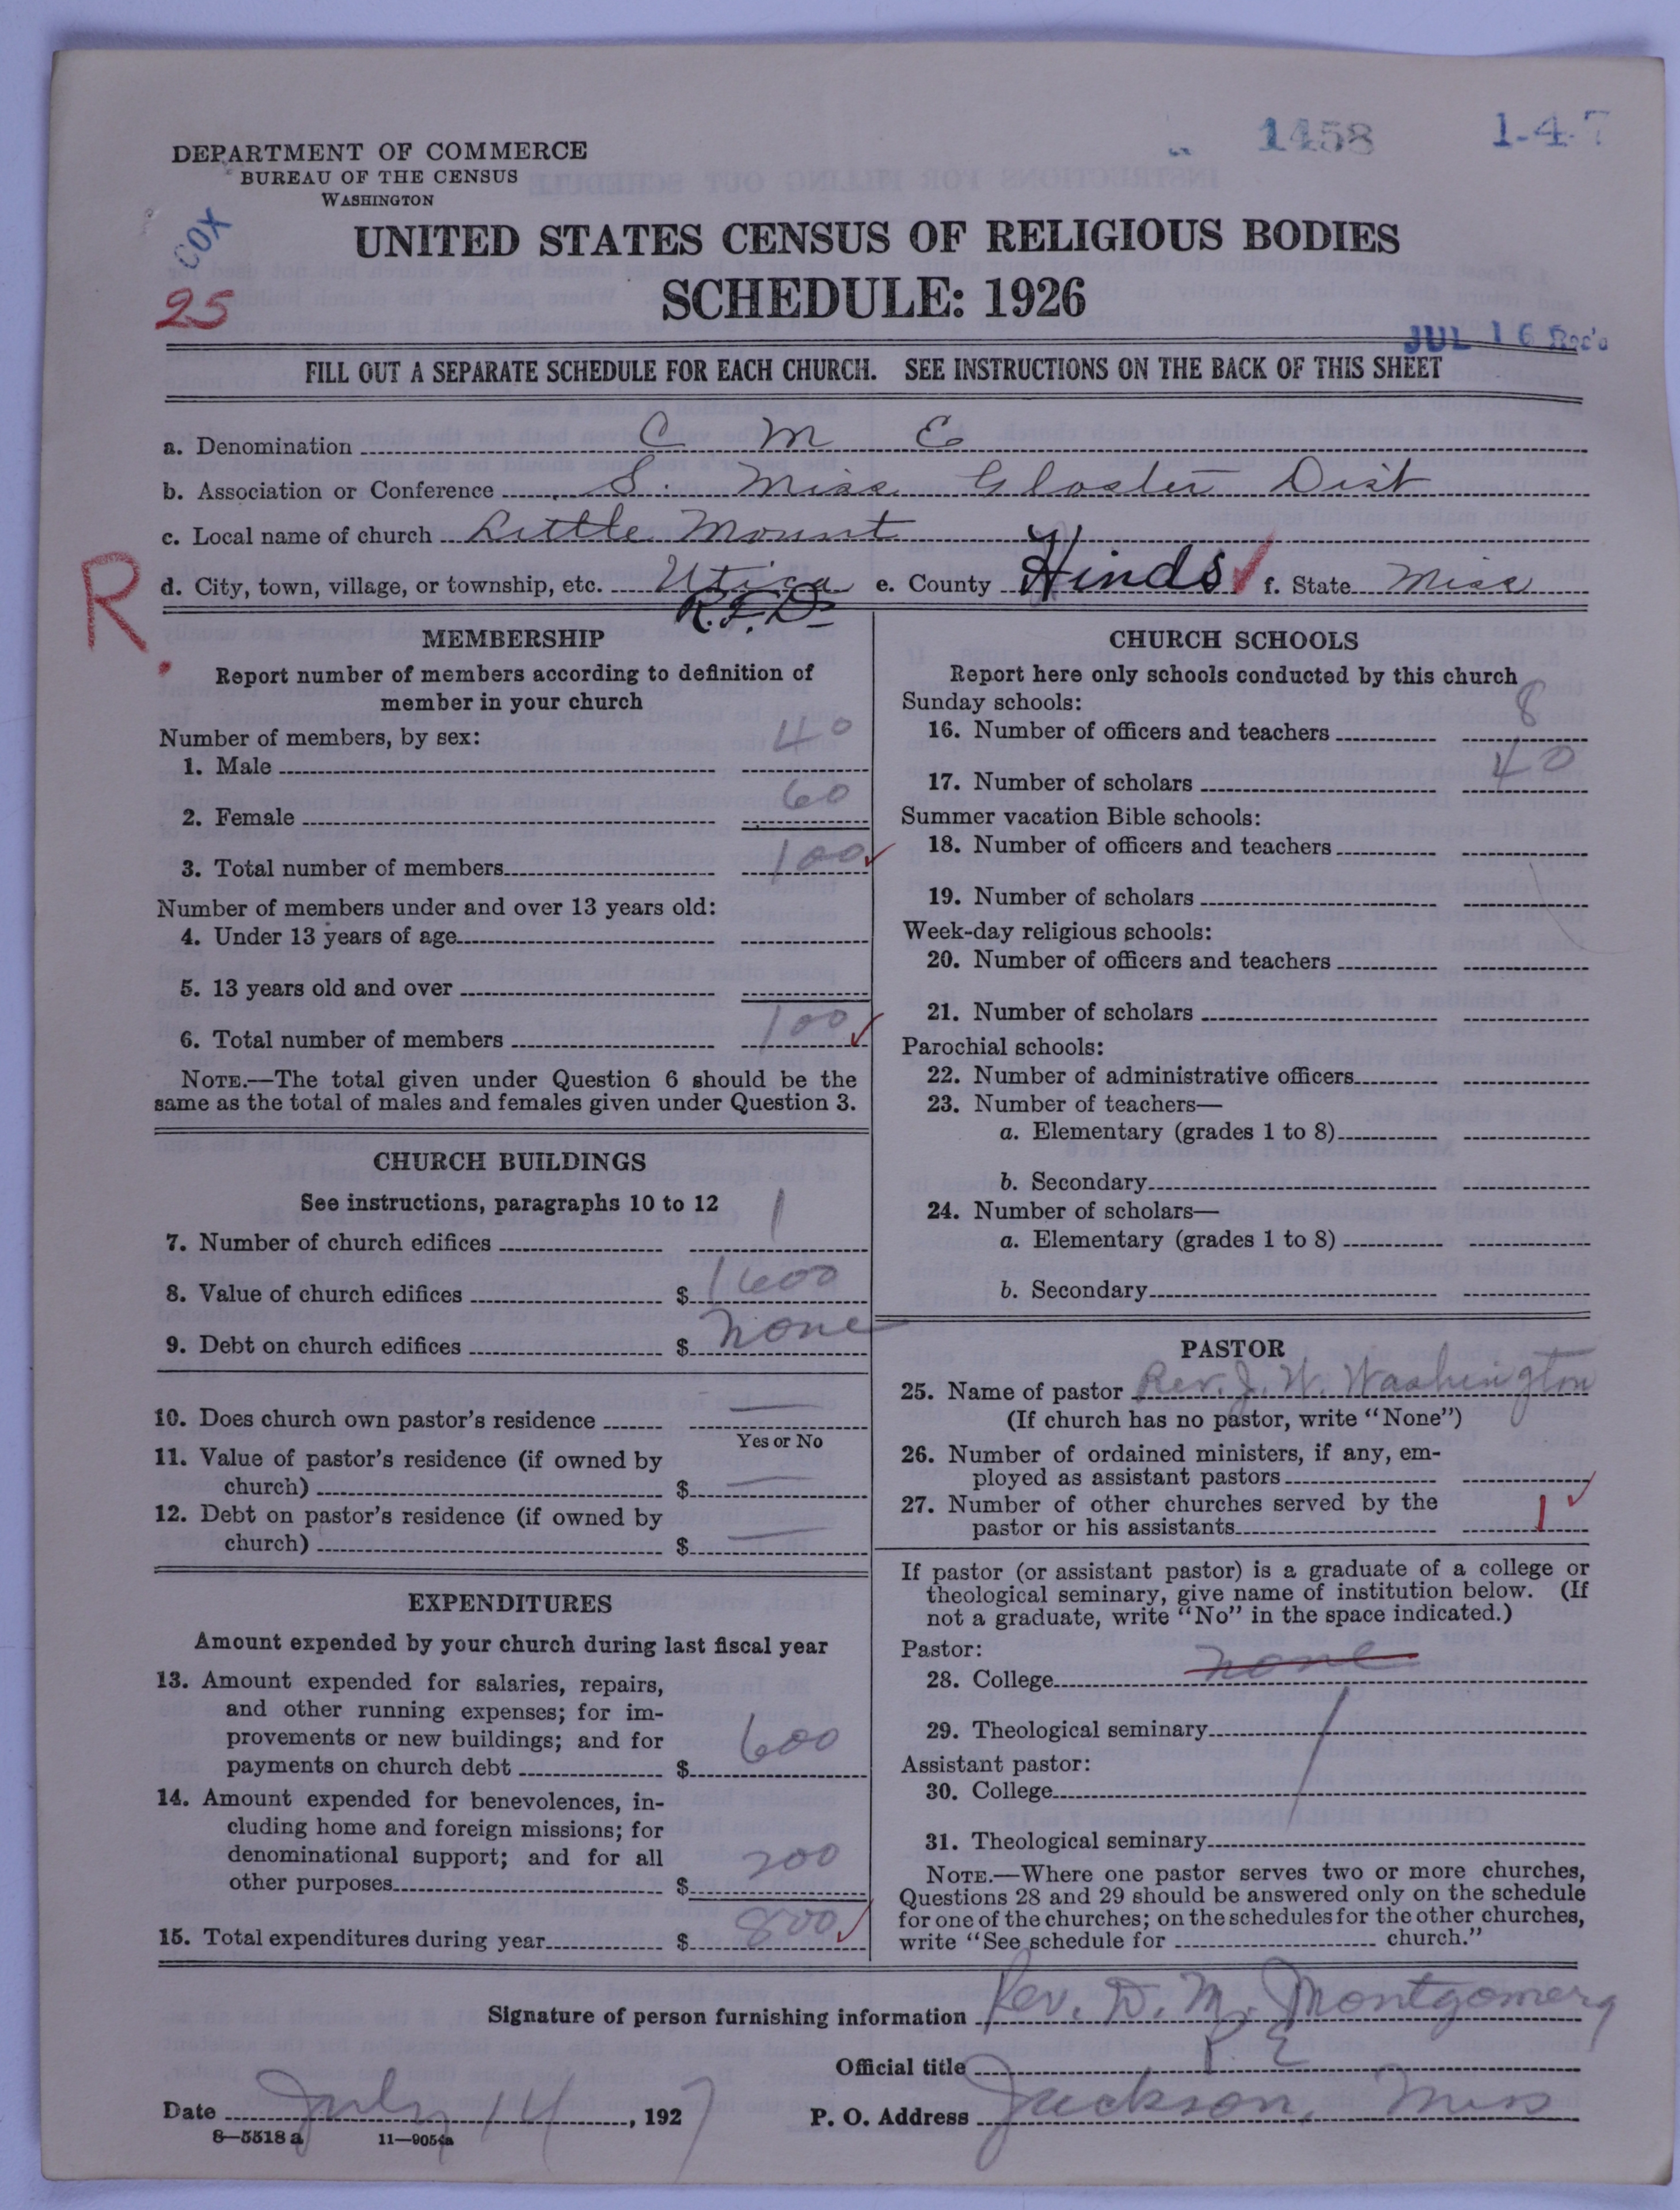 1458
1-4-7
DEPARTMENT OF COMMERCE
BUREAU OF THE CENSUS
WASHINGTON
COX
25
UNITED STATES CENSUS OF RELIGIOUS BODIES
SCHEDULE: 1926
JUL 16 Rec'd
FILL OUT A SEPARATE SCHEDULE FOR EACH CHURCH. SEE INSTRUCTIONS ON THE BACK OF THIS SHEET
a. Denomination C M E
b. Association or Conference S. Miss Gloster Dist
c. Local name of church Little Mount
R.
d. City, town, village, or township, etc. Utica e. County Hinds f. State Miss
R.F.D.
MEMBERSHIP
Report number of members according to definition of
member in your church
Number of members, by sex:
1. Male 40
2. Female 60
3. Total number of members 100
Number of members under and over 13 years old:
4. Under 13 years of age
5. 13 years old and over
6. Total number of members 100
NOTE.—The total given under Question 6 should be the
same as the total of males and females given under Question 3.
CHURCH BUILDINGS
See instructions, paragraphs 10 to 12
7. Number of church edifices 1
8. Value of church edifices $ 1600
9. Debt on church edifices $ none
10. Does church own pastor's residence —
Yes or No
11. Value of pastor's residence (if owned by
church) $ —
12. Debt on pastor's residence (if owned by
church) $ —
EXPENDITURES
Amount expended by your church during last fiscal year
13. Amount expended for salaries, repairs,
and other running expenses; for im-
provements or new buildings; and for
payments on church debt $ 600
14. Amount expended for benevolences, in-
cluding home and foreign missions; for
denominational support; and for all
other purposes $ 200
15. Total expenditures during year $ 800
CHURCH SCHOOLS
Report here only schools conducted by this church
Sunday schools:
16. Number of officers and teachers 8
17. Number of scholars 40
Summer vacation Bible schools:
18. Number of officers and teachers
19. Number of scholars
Week-day religious schools:
20. Number of officers and teachers
21. Number of scholars
Parochial schools:
22. Number of administrative officers
23. Number of teachers—
a. Elementary (grades 1 to 8)
b. Secondary
24. Number of scholars—
a. Elementary (grades 1 to 8)
b. Secondary
PASTOR
25. Name of pastor Rev. J. W. Washington
(If church has no pastor, write "None")
26. Number of ordained ministers, if any, em-
ployed as assistant pastors
27. Number of other churches served by the
pastor or his assistants 1
If pastor (or assistant pastor) is a graduate of a college or
theological seminary, give name of institution below. (If
not a graduate, write "No" in the space indicated.)
Pastor:
28. College none
29. Theological seminary
Assistant pastor:
30. College
31. Theological seminary
NOTE.—Where one pastor serves two or more churches,
Questions 28 and 29 should be answered only on the schedule
for one of the churches; on the schedules for the other churches,
write "See schedule for church."
Signature of person furnishing information Rev. D. M. Montgomery
Official title P. E
Date July 14, 1927 P. O. Address Jackson, Miss
8—5518 a 11—9054a